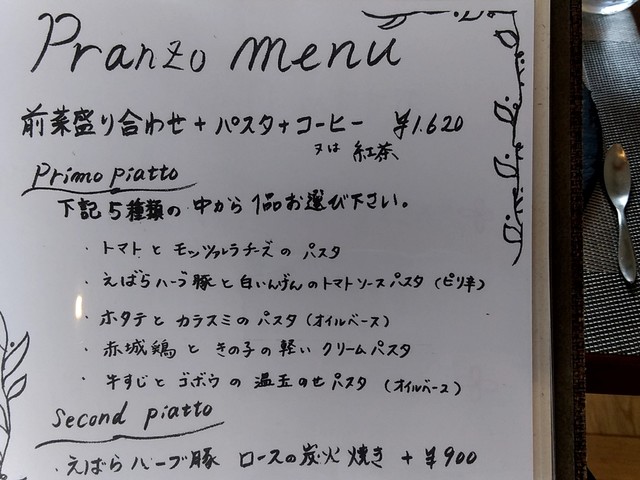 Pranzo menu
前菜盛り合わせ + パスタ + コーヒー ¥1.620
又は 紅茶
Primo piatto
下記5種類の中から 1品お選び下さい。
・トマトと モッツァレラチーズの パスタ
・えばらハーブ豚と白いんげんのトマトソースパスタ (ピリ辛)
・ホタテと カラスミのパスタ (オイルベース)
・赤城鶏と きの子の軽い クリームパスタ
・牛すじと ゴボウの 温玉のせパスタ (オイルベース)
Second piatto
・えばらハーブ豚 ロースの炭火焼き + ¥900